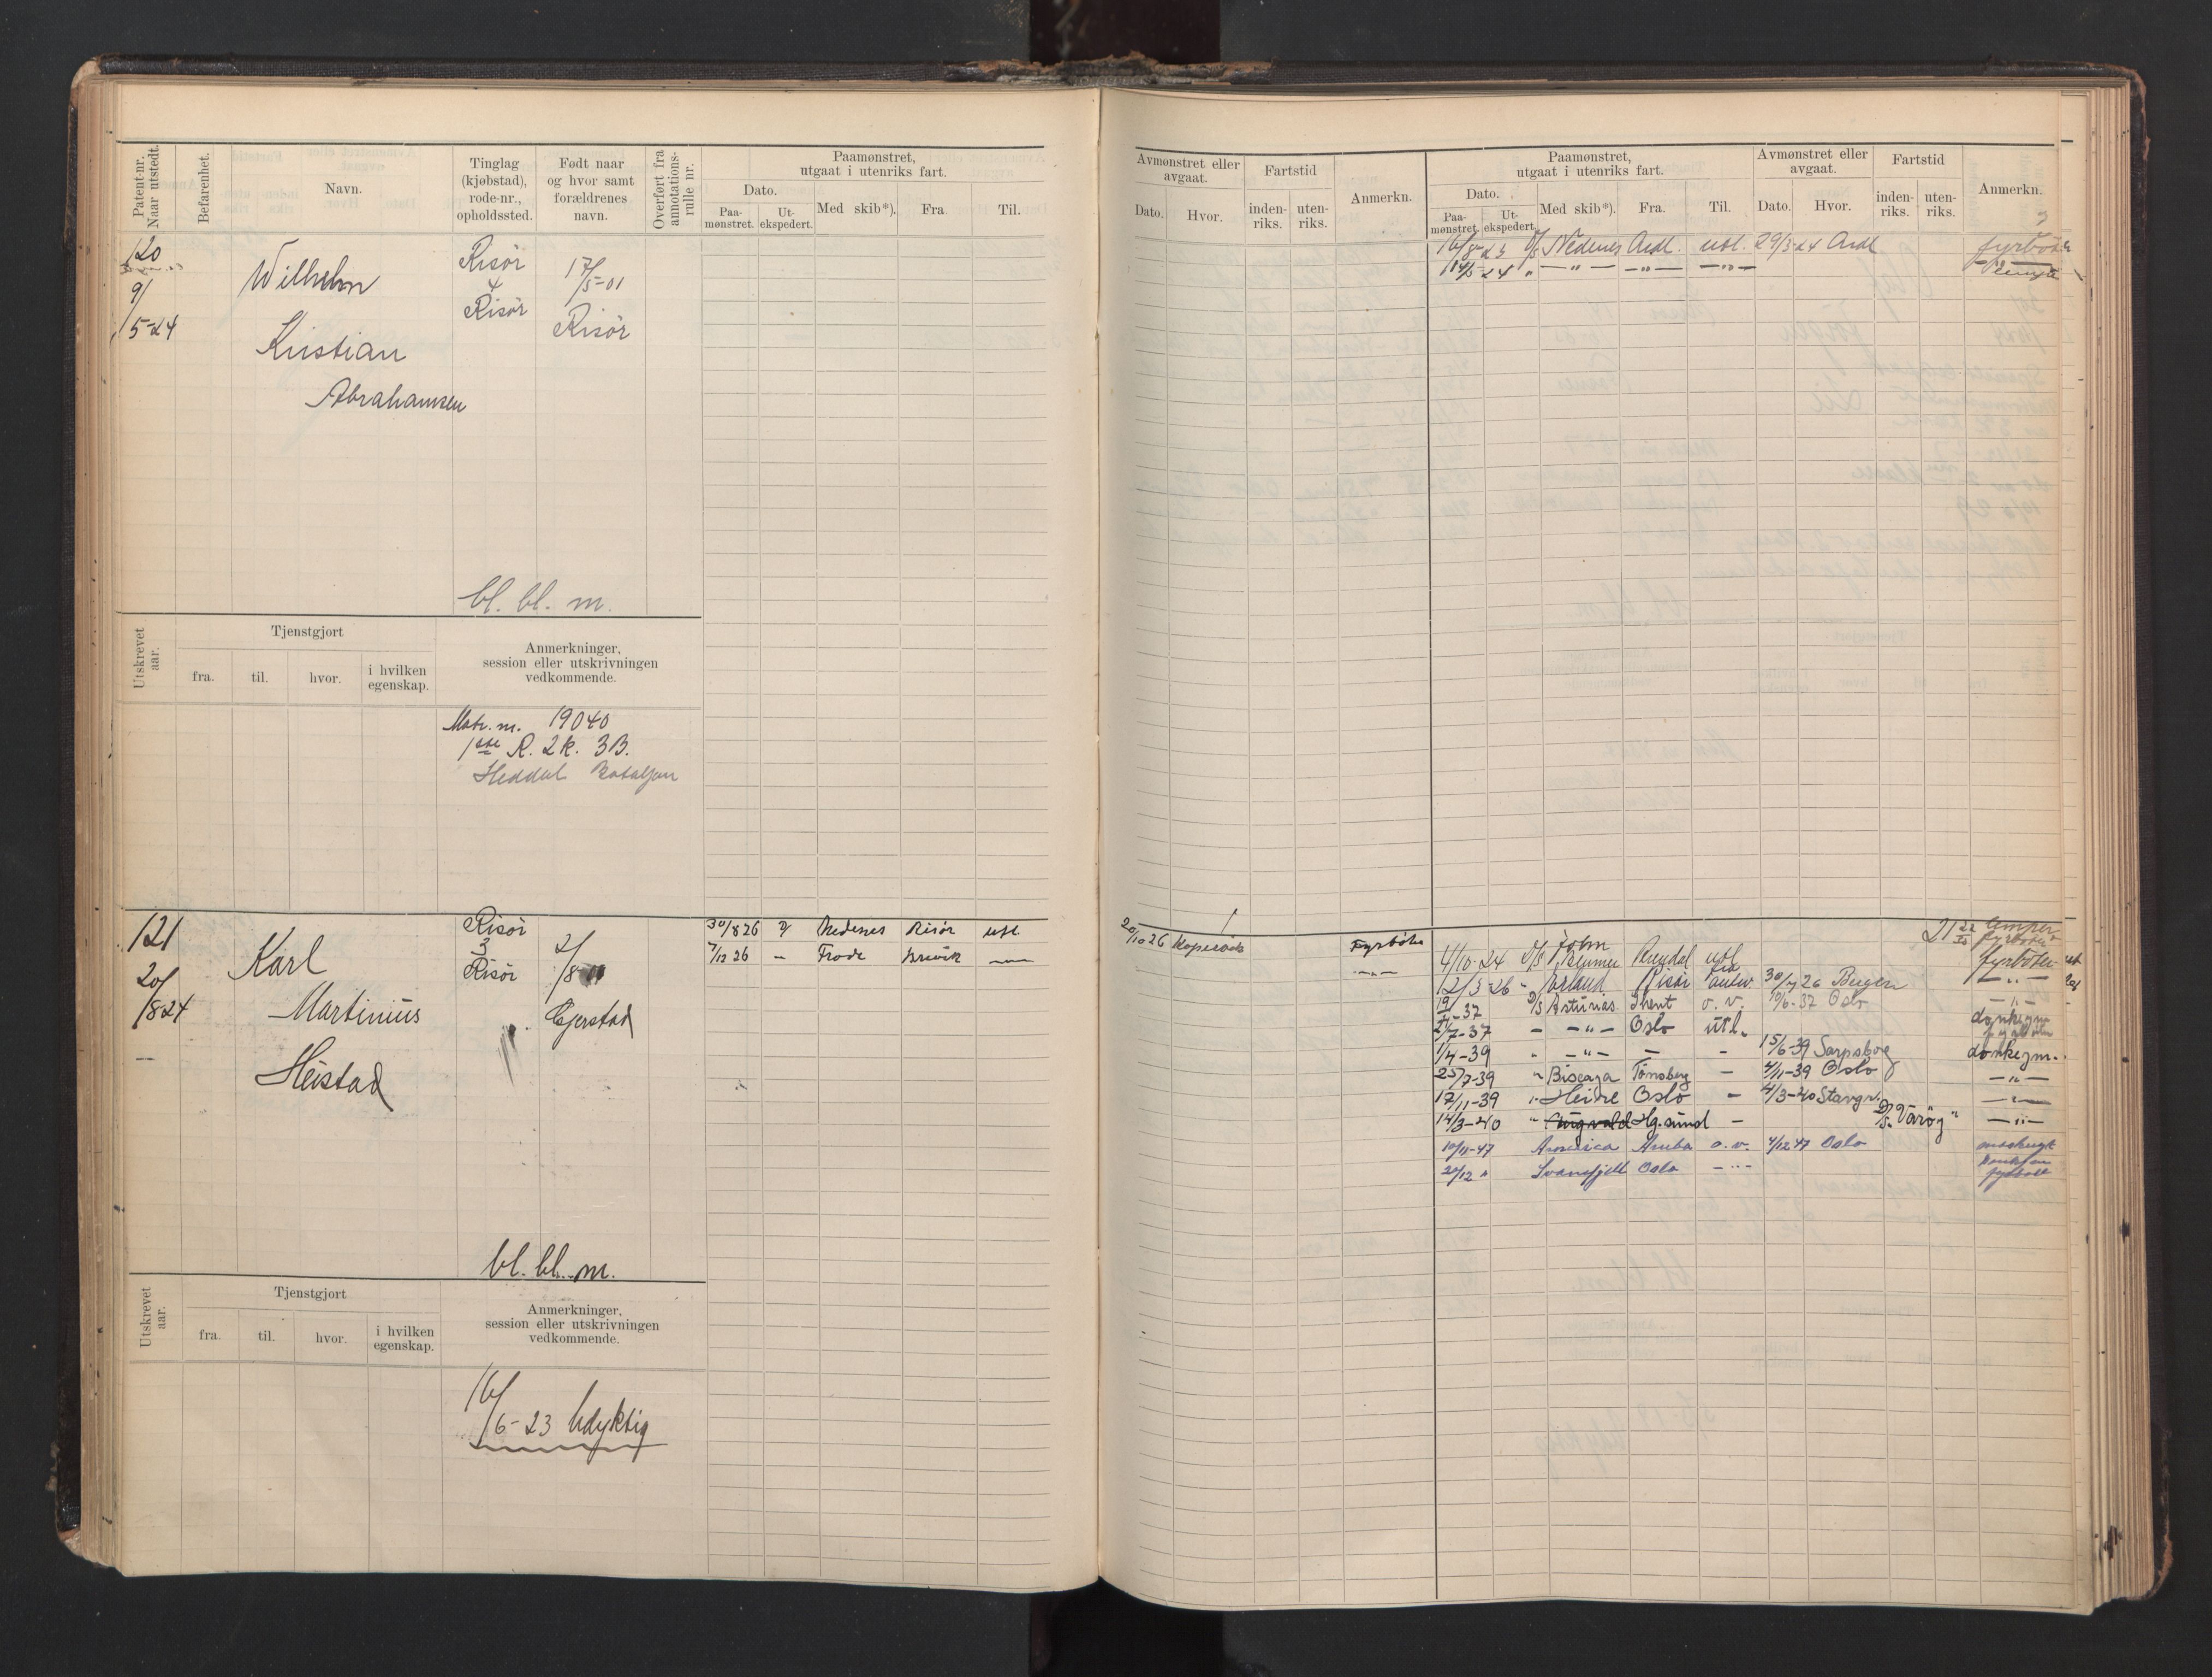 Patent-nr. Naar utstedt.
Befarenhet.
Navn.
Tinglag (kjøbstad), rode-nr., opholdssted.
Født naar og hvor samt forældrenes navn.
Overført fra annotations-rulle nr.
Paamønstret, utgaat i utenriks fart.
Dato.
Paa-mønstret.
Ut-ekspedert.
Med skib*).
Fra
Til.
120
9/5-24
Wilhelm
Kristian
Abrahamsen
Risör
4
Risör
17/5-01
Risör
bl. bl. m.
Utskrevet aar.
Tjenstgjort
fra.
til.
hvor.
i hvilken egenskap.
Anmerkninger, session eller utskrivningen vedkommende.
19040
R. 2k. 3B.
Heddal Bataljon
121
20/8 24
Karl
Martinius
Heistad
Risör
3
Risör
2/8
Gjerstad
30/8 26 Nedenes Risör utl.
7/12 26 - Frode Brevik -"-
bl. bl. m.
Utskrevet aar.
Tjenstgjort
fra.
til.
hvor.
i hvilken egenskap.
Anmerkninger, session eller utskrivningen vedkommende.
16/6-23 Udyktig
Avmønstret eller avgaat.
Dato.
Hvor.
Fartstid
inden-riks.
uten-riks.
Anmerkn.
Paamønstret, utgaat i utenriks fart.
Dato.
Paa-mønstret.
Ut-ekspedert.
Med skib*).
Fra.
Til.
Avmønstret eller avgaat.
Dato.
Hvor.
Fartstid
inden-riks.
uten-riks.
Anmerkn.
16/8-23 D/S Nedenes Ardl. utl. 29/3 24 Ardl fyrböter
24 " -"- -"- -"-
20/10 26
Fyrböter
-"-
lemper
fyrböter
4/10-24 D/S John Blumer utl fyrböter
12/3-26 " Risör 30/7 26 Bergen -"-
37 D/S Asturias Ghent o. v. 10/6-37 Oslo -"-
7-37 - -"- Oslo utl.
1/4-39 " -"- - - 15/6-39 Sarpsborg donkeym.
25/7-39 " Biscaya Tönsberg - 4/11-39 Oslo -"-
17/11-39 " Heire Oslo - 4/3-40 Stavgr. -"-
14/3-40 " Hg.sund - D/S. "Varög" -"-
10/11-47 America Aruba o. v. 4/12 47 Oslo
20/12 " Svansfjell Oslo -"-